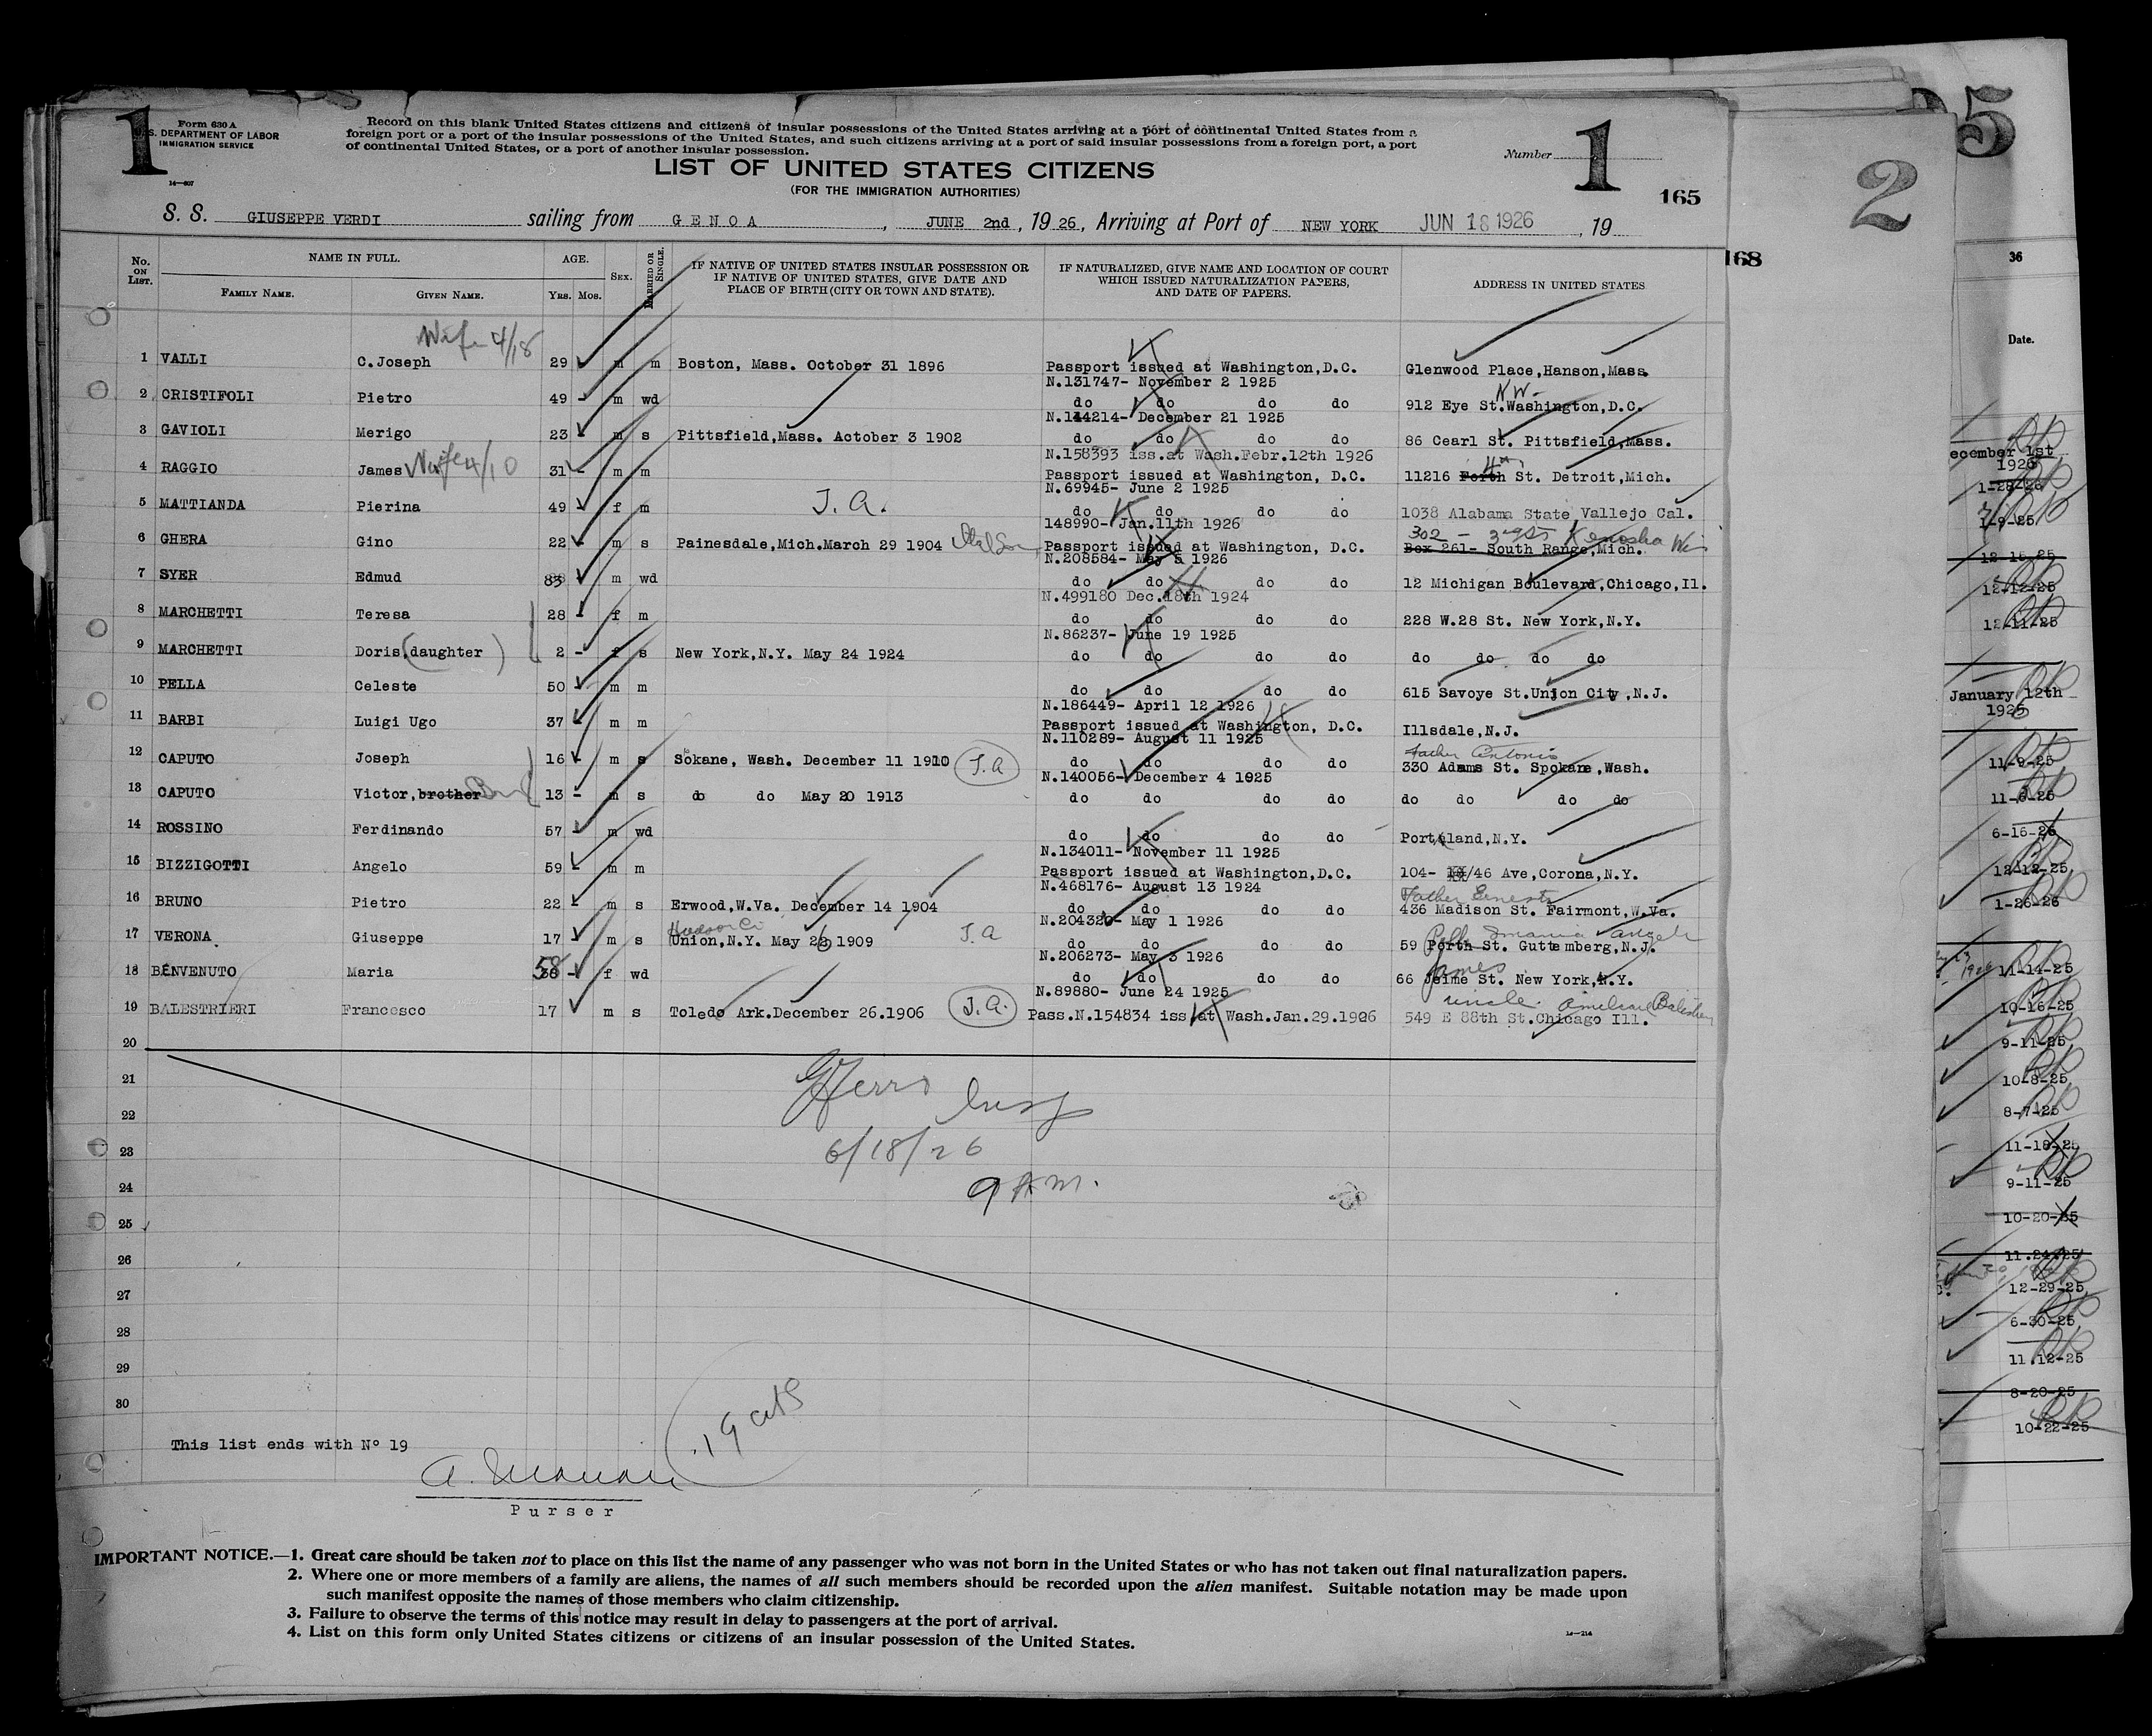 1
Form 630 A
U.S. DEPARTMENT OF LABOR
IMMIGRATION SERVICE
14—807
Record on this blank United States citizens and citizens of insular possessions of the United States arriving at a port of continental United States from a
foreign port or a port of the insular possessions of the United States, and such citizens arriving at a port of said insular possessions from a foreign port, a port
of continental United States, or a port of another insular possession.
LIST OF UNITED STATES CITIZENS
(FOR THE IMMIGRATION AUTHORITIES)
Number 1
165
S. S. GIUSEPPE VERDI sailing from GENOA, JUNE 2nd, 1926, Arriving at Port of NEW YORK JUN 18 1926, 19
No. ON LIST. NAME IN FULL. FAMILY NAME. GIVEN NAME. AGE. YRS. MOS. SEX. MARRIED OR SINGLE. IF NATIVE OF UNITED STATES INSULAR POSSESSION OR IF NATIVE OF UNITED STATES, GIVE DATE AND PLACE OF BIRTH (CITY OR TOWN AND STATE). IF NATURALIZED, GIVE NAME AND LOCATION OF COURT WHICH ISSUED NATURALIZATION PAPERS, AND DATE OF PAPERS. ADDRESS IN UNITED STATES
Wife 4/18
1 VALLI C.Joseph 29 m m Boston, Mass. October 31 1896 Passport issued at Washington,D.C. Glenwood Place,Hanson,Mass.
N.131747- November 2 1925
NW-
2 CRISTIFOLI Pietro 49 - m wd do do do do 912 Eye St.Washington,D.C.
N.144214- December 21 1925
3 GAVIOLI Merigo 23 - m s Pittsfield,Mass. Actober 3 1902 do do do do 86 Cearl St. Pittsfield,Mass.
N.158393 iss.at Wash.Febr.12th 1926
4 RAGGIO James Wife 4/10 31 - m m Passport issued at Washington, D.C. 11216 Forth 4th St. Detroit,Mich.
N.69945- June 2 1925
5 MATTIANDA Pierina 49 - f m I.A. do do do do 1038 Alabama State Vallejo Cal.
148990- Jan.11th 1926
302 - 3rd St Kenosha Wis
6 GHERA Gino 22 - m s Painesdale,Mich.March 29 1904 Passport issued at Washington, D.C. Box 261- South Range,Mich.
N.208584- May 5 1926
7 SYER Edmud 83 m wd do do do do 12 Michigan Boulevard,Chicago,Il.
N.499180 Dec.18th 1924
8 MARCHETTI Teresa 28 - f m do do do do 228 W.28 St. New York,N.Y.
N.86237- June 19 1925
9 MARCHETTI Doris,(daughter) 2 - f s New York,N.Y. May 24 1924 do do do do do do do do
10 PELLA Celeste 50 - m m do do do do 615 Savoye St.Union City,N.J.
N.186449- April 12 1926
11 BARBI Luigi Ugo 37 m m Passport issued at Washington, D.C. Illsdale,N.J.
N.110289- August 11 1925
Father Antonio
12 CAPUTO Joseph 16 - m s Sokane, Wash. December 11 1910 I.A do do do do 330 Adams St. Spokane,Wash.
N.140056- December 4 1925
13 CAPUTO Victor,brother 13 - m s do do May 20 1913 do do do do do do do do
14 ROSSINO Ferdinando 57 - m wd do do do do Portland,N.Y.
N.134011- November 11 1925
15 BIZZIGOTTI Angelo 59 - m m Passport issued at Washington,D.C. 104- /46 Ave,Corona,N.Y.
N.468176- August 13 1924
Father Ernesto
16 BRUNO Pietro 22 - m s Erwood,W.Va. December 14 1904 do do do do 436 Madison St. Fairmont,W.Va.
N.204320- May 1 1926
17 VERONA Giuseppe 17 - m s Union,N.Y. May 1909 I.A do do do do 59 Porth St. Guttemberg,N.J.
N.206273- May 3 1926
James
18 BENVENUTO Maria 58 - f wd do do do do 66 Jeime St. New York,N.Y.
N.89880- June 24 1925
uncle
19 BALESTRIERI Francesco 17 m s Toledo Ark.December 26.1906 I.A. Pass.N.154834 iss at Wash.Jan.29.1906 549 E 88th St.Chicago Ill.
20
21
22
23
24
25
26
27
28
29
30
Insp
6/18/26
9 AM.
19 cits
This list ends with Nº 19
Purser
IMPORTANT NOTICE.—1. Great care should be taken not to place on this list the name of any passenger who was not born in the United States or who has not taken out final naturalization papers.
2. Where one or more members of a family are aliens, the names of all such members should be recorded upon the alien manifest. Suitable notation may be made upon
such manifest opposite the names of those members who claim citizenship.
3. Failure to observe the terms of this notice may result in delay to passengers at the port of arrival.
4. List on this form only United States citizens or citizens of an insular possession of the United States.
14—214
2
168
5
36
Date.
ecember 1st
1926
1-28-26
1-9-25
12-16-25
12-12-25
12-11-25
January 12th
1926
11-9-25
11-6-25
6-16-26
12-12-25
1-26-26
11-14-25
10-16-25
9-11-25
10-8-25
8-7-25
11-18-25
9-11-25
10-20-25
11.24.25
12-29-25
6-30-25
11.12-25
8-20-25
10-22-25